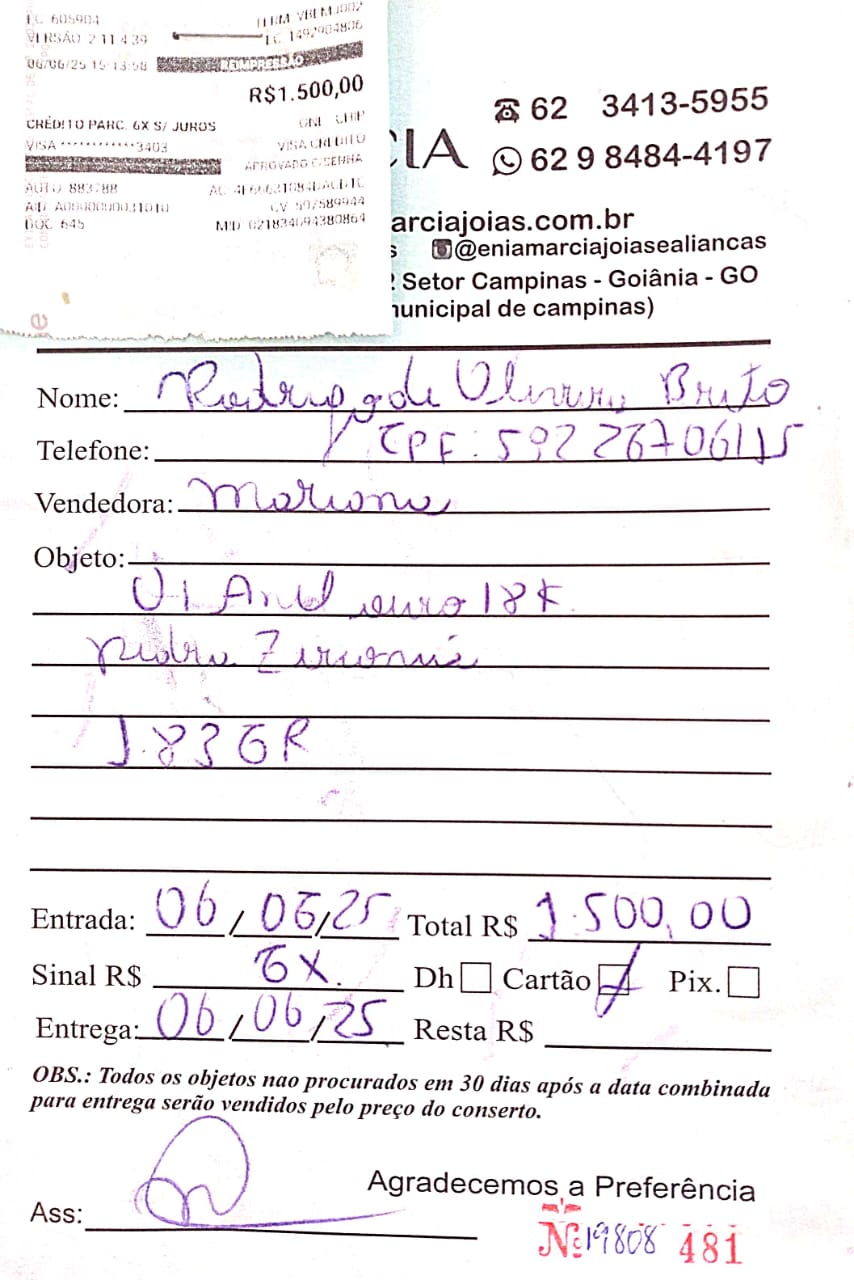 EC 605904 TERM VBEMJ002
VERSÃO 2 11 4 39 EC 1492904806
06/06/25 15:13:58 REIMPRESSÃO
R$1.500,00
CRÉDITO PARC. 6X S/ JUROS ONL CHIP
VISA ************3403 VISA CREDITO
APROVADO C/SENHA
AUTO 883788
AID A0000000031010 CV 597589944
DOC 645 MID 021834094380864
CIA
62 3413-5955
62 9 8484-4197
arciajoias.com.br
s @eniamarciajoiasealiancas
Setor Campinas - Goiânia - GO
unicipal de campinas)
Nome: Rodrigo de Oliveira Brito
Telefone: CPF: 592 26706115
Vendedora: Mariana
Objeto:
01 Anel ouro 18K
pedra Zirconia
1.83 GR
Entrada: 06/06/25 Total R$ 1.500,00
Sinal R$ 6X. Dh Cartão Pix.
Entrega: 06/06/25 Resta R$
OBS.: Todos os objetos nao procurados em 30 dias após a data combinada
para entrega serão vendidos pelo preço do conserto.
Agradecemos a Preferência
Ass:
Nº 19808 481